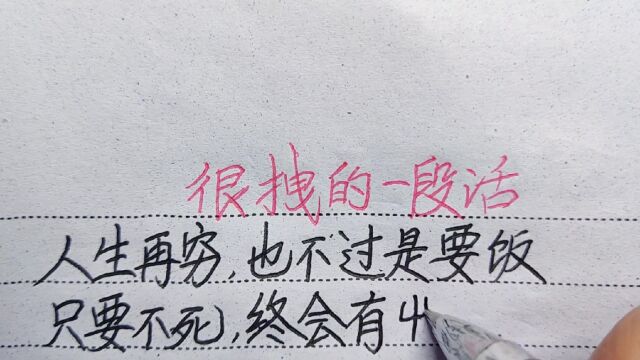 很拽的一段话
人生再穷,也不过是要饭
只要不死,终会有